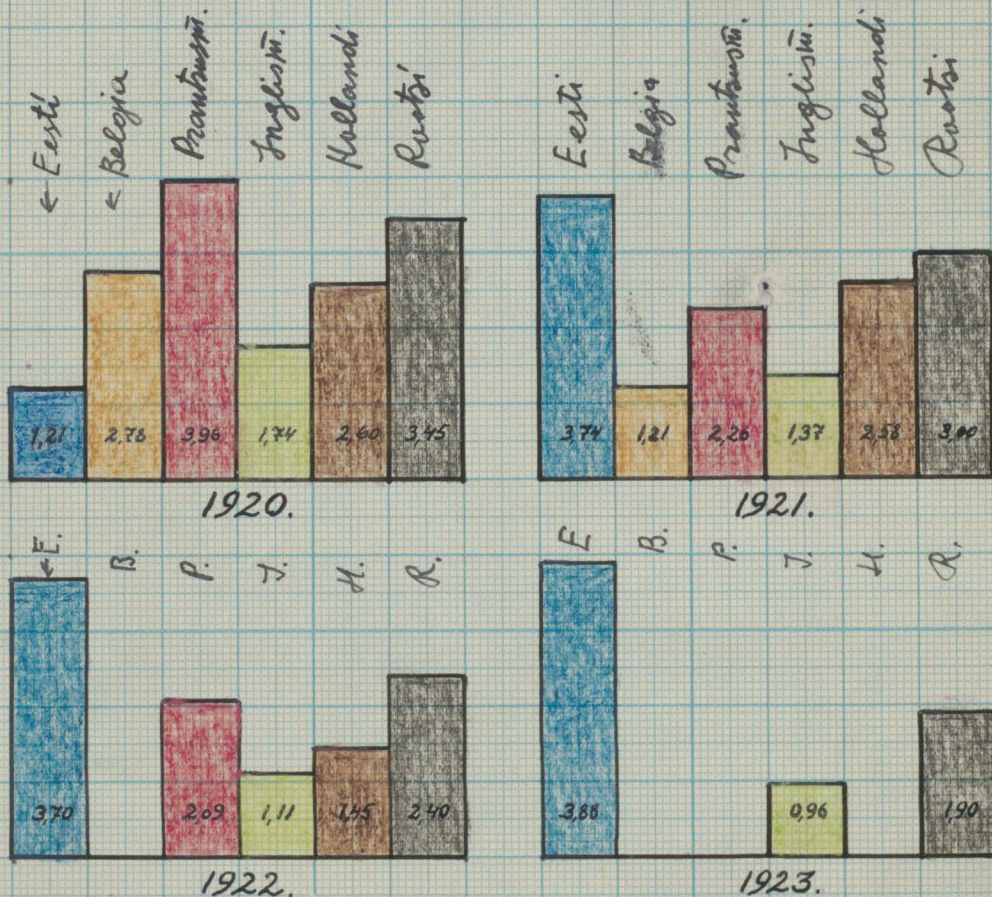 ← Eesti ← Belgia Prantsusm. Inglism. Hollandi Rootsi
1,21 2,78 3,96 1,74 2,60 3,45
1920.
Eesti Belgia Prantsusm. Inglism. Hollandi Rootsi
3,74 1,21 2,26 1,37 2,58 3,00
1921.
←E. B. P. I. H. R.
3,70 2,09 1,11 1,45 2,40
1922.
E B. P. I. H. R.
3,88 0,96 1,90
1923.